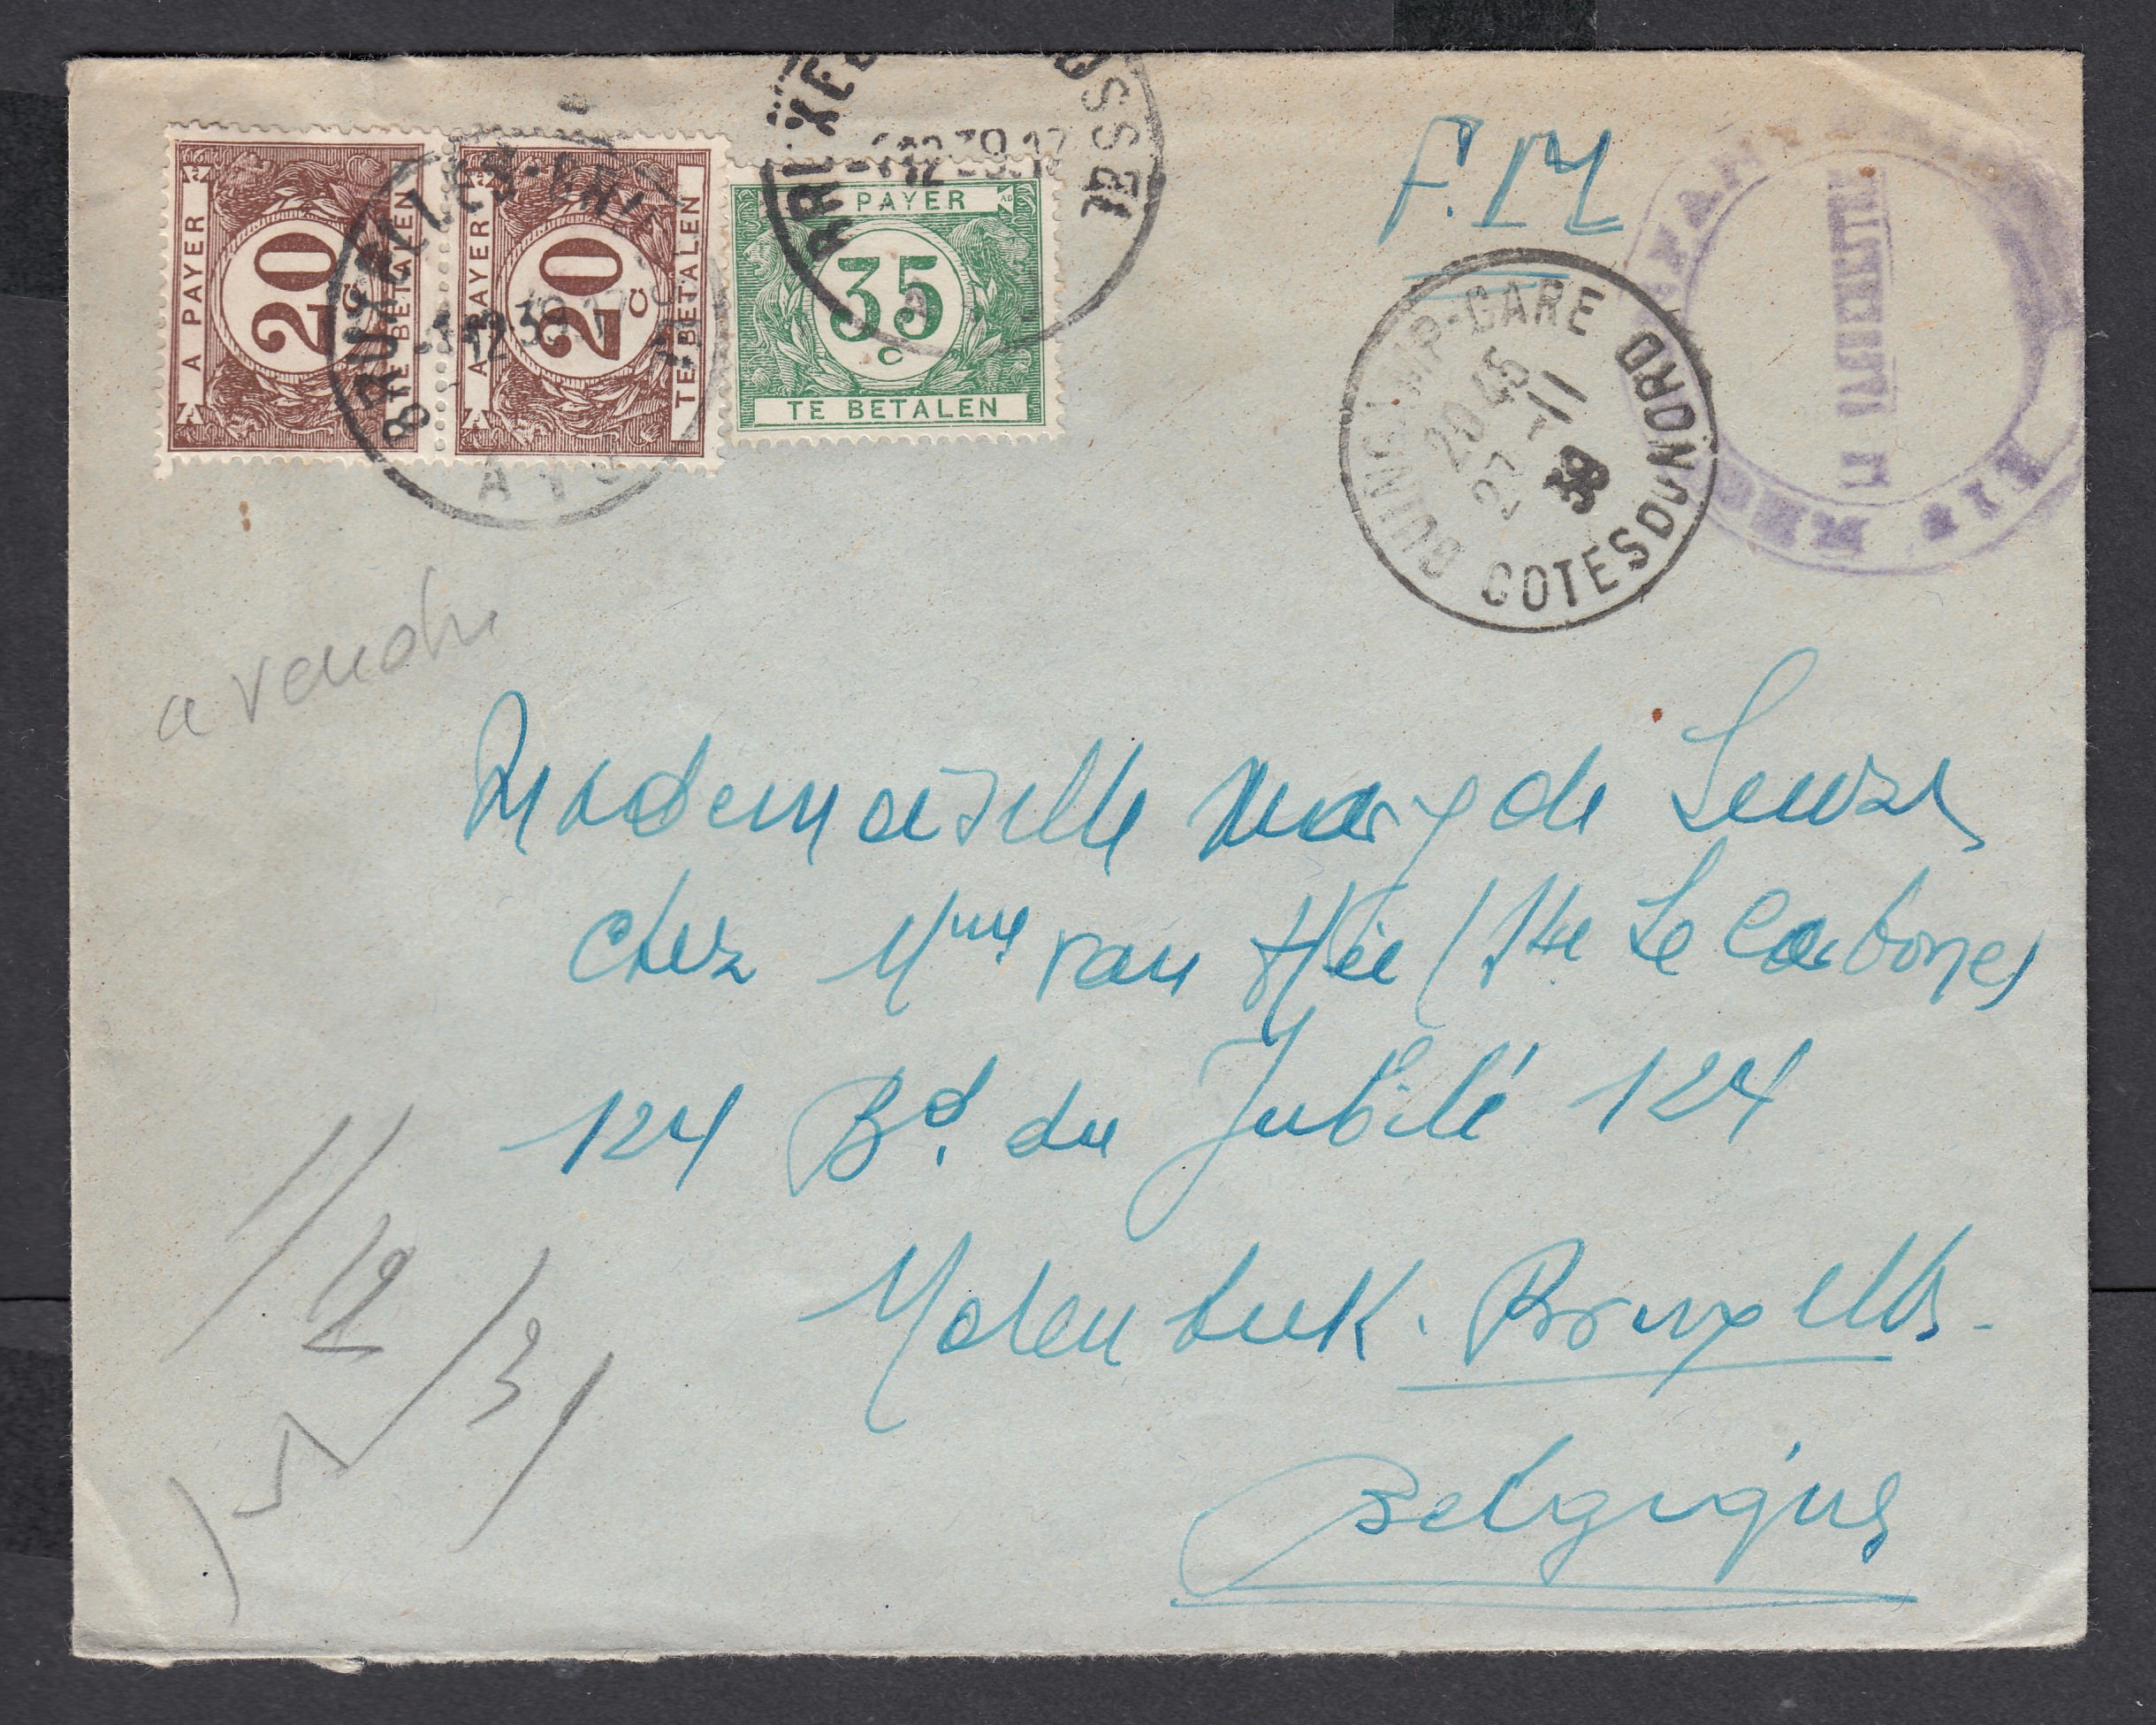 F.M
A PAYER
20 c
TE BETALEN
A PAYER
20 c
TE BETALEN
PAYER
35 c
TE BETALEN
BRUXELLES
12 39
BRUSSEL
GUINGAMP-GARE
20 45
27 -11
39
COTES DU NORD
a vendre
Mademoiselle Mary de
chez Mme van Hée (Sté Le Carbone)
124 Bd. du Jubilé 124
Molenbeek. Bruxelles.-
Belgique